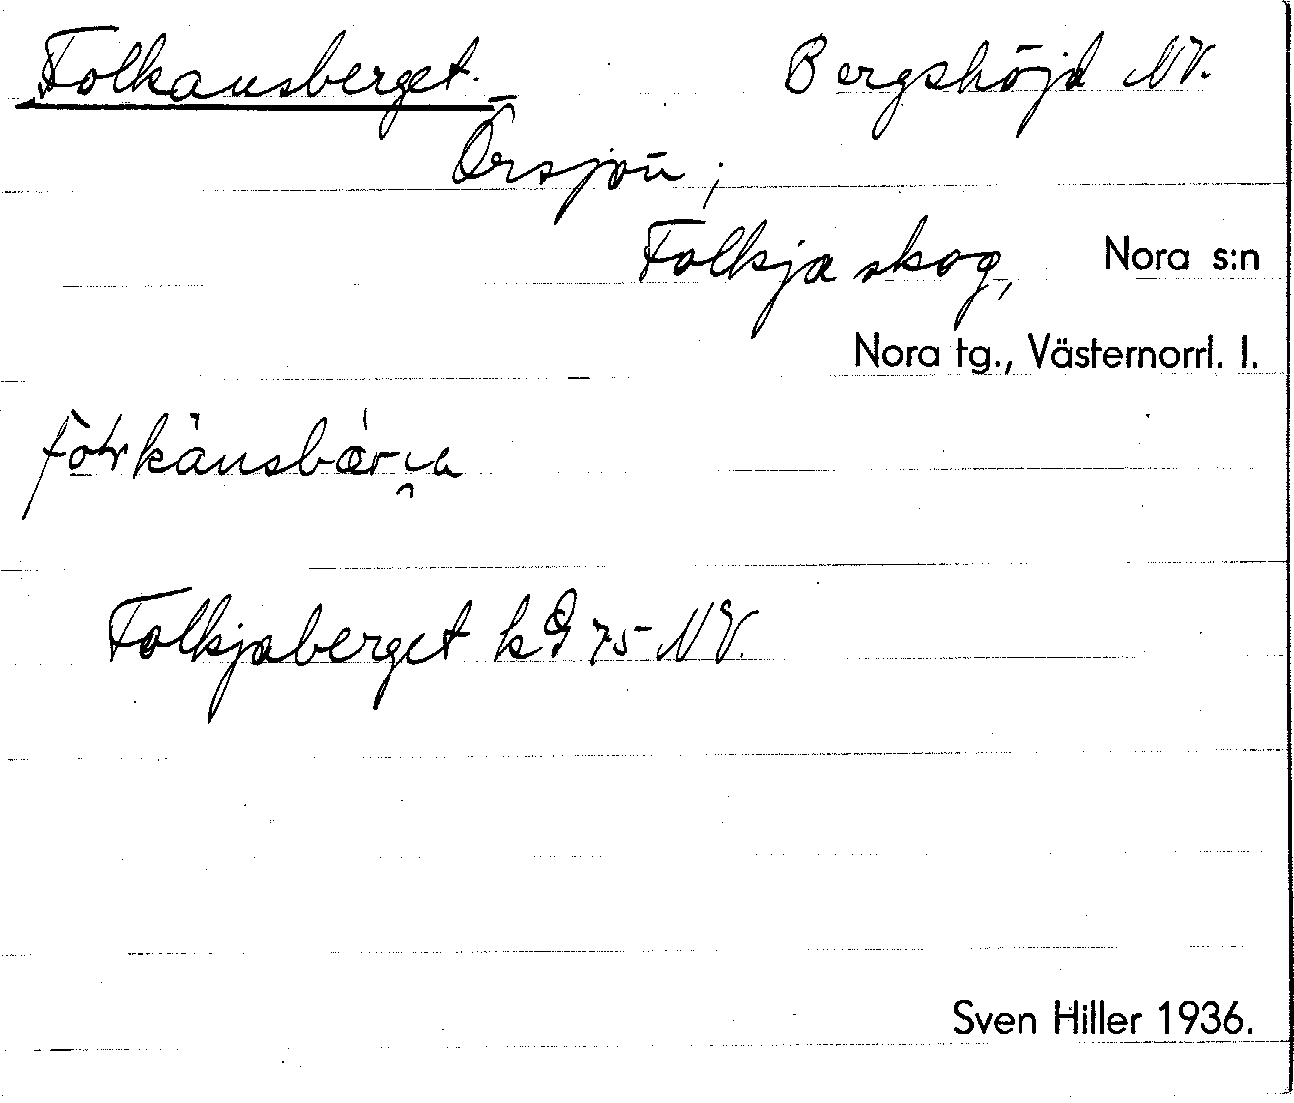 Folkansberget. Bergshöjd NV.
Örsjön;
Folkja skog, Nora s:n
Nora tg., Västernorrl. l.
Folkjaberget k G 75 NV.
Sven Hiller 1936.